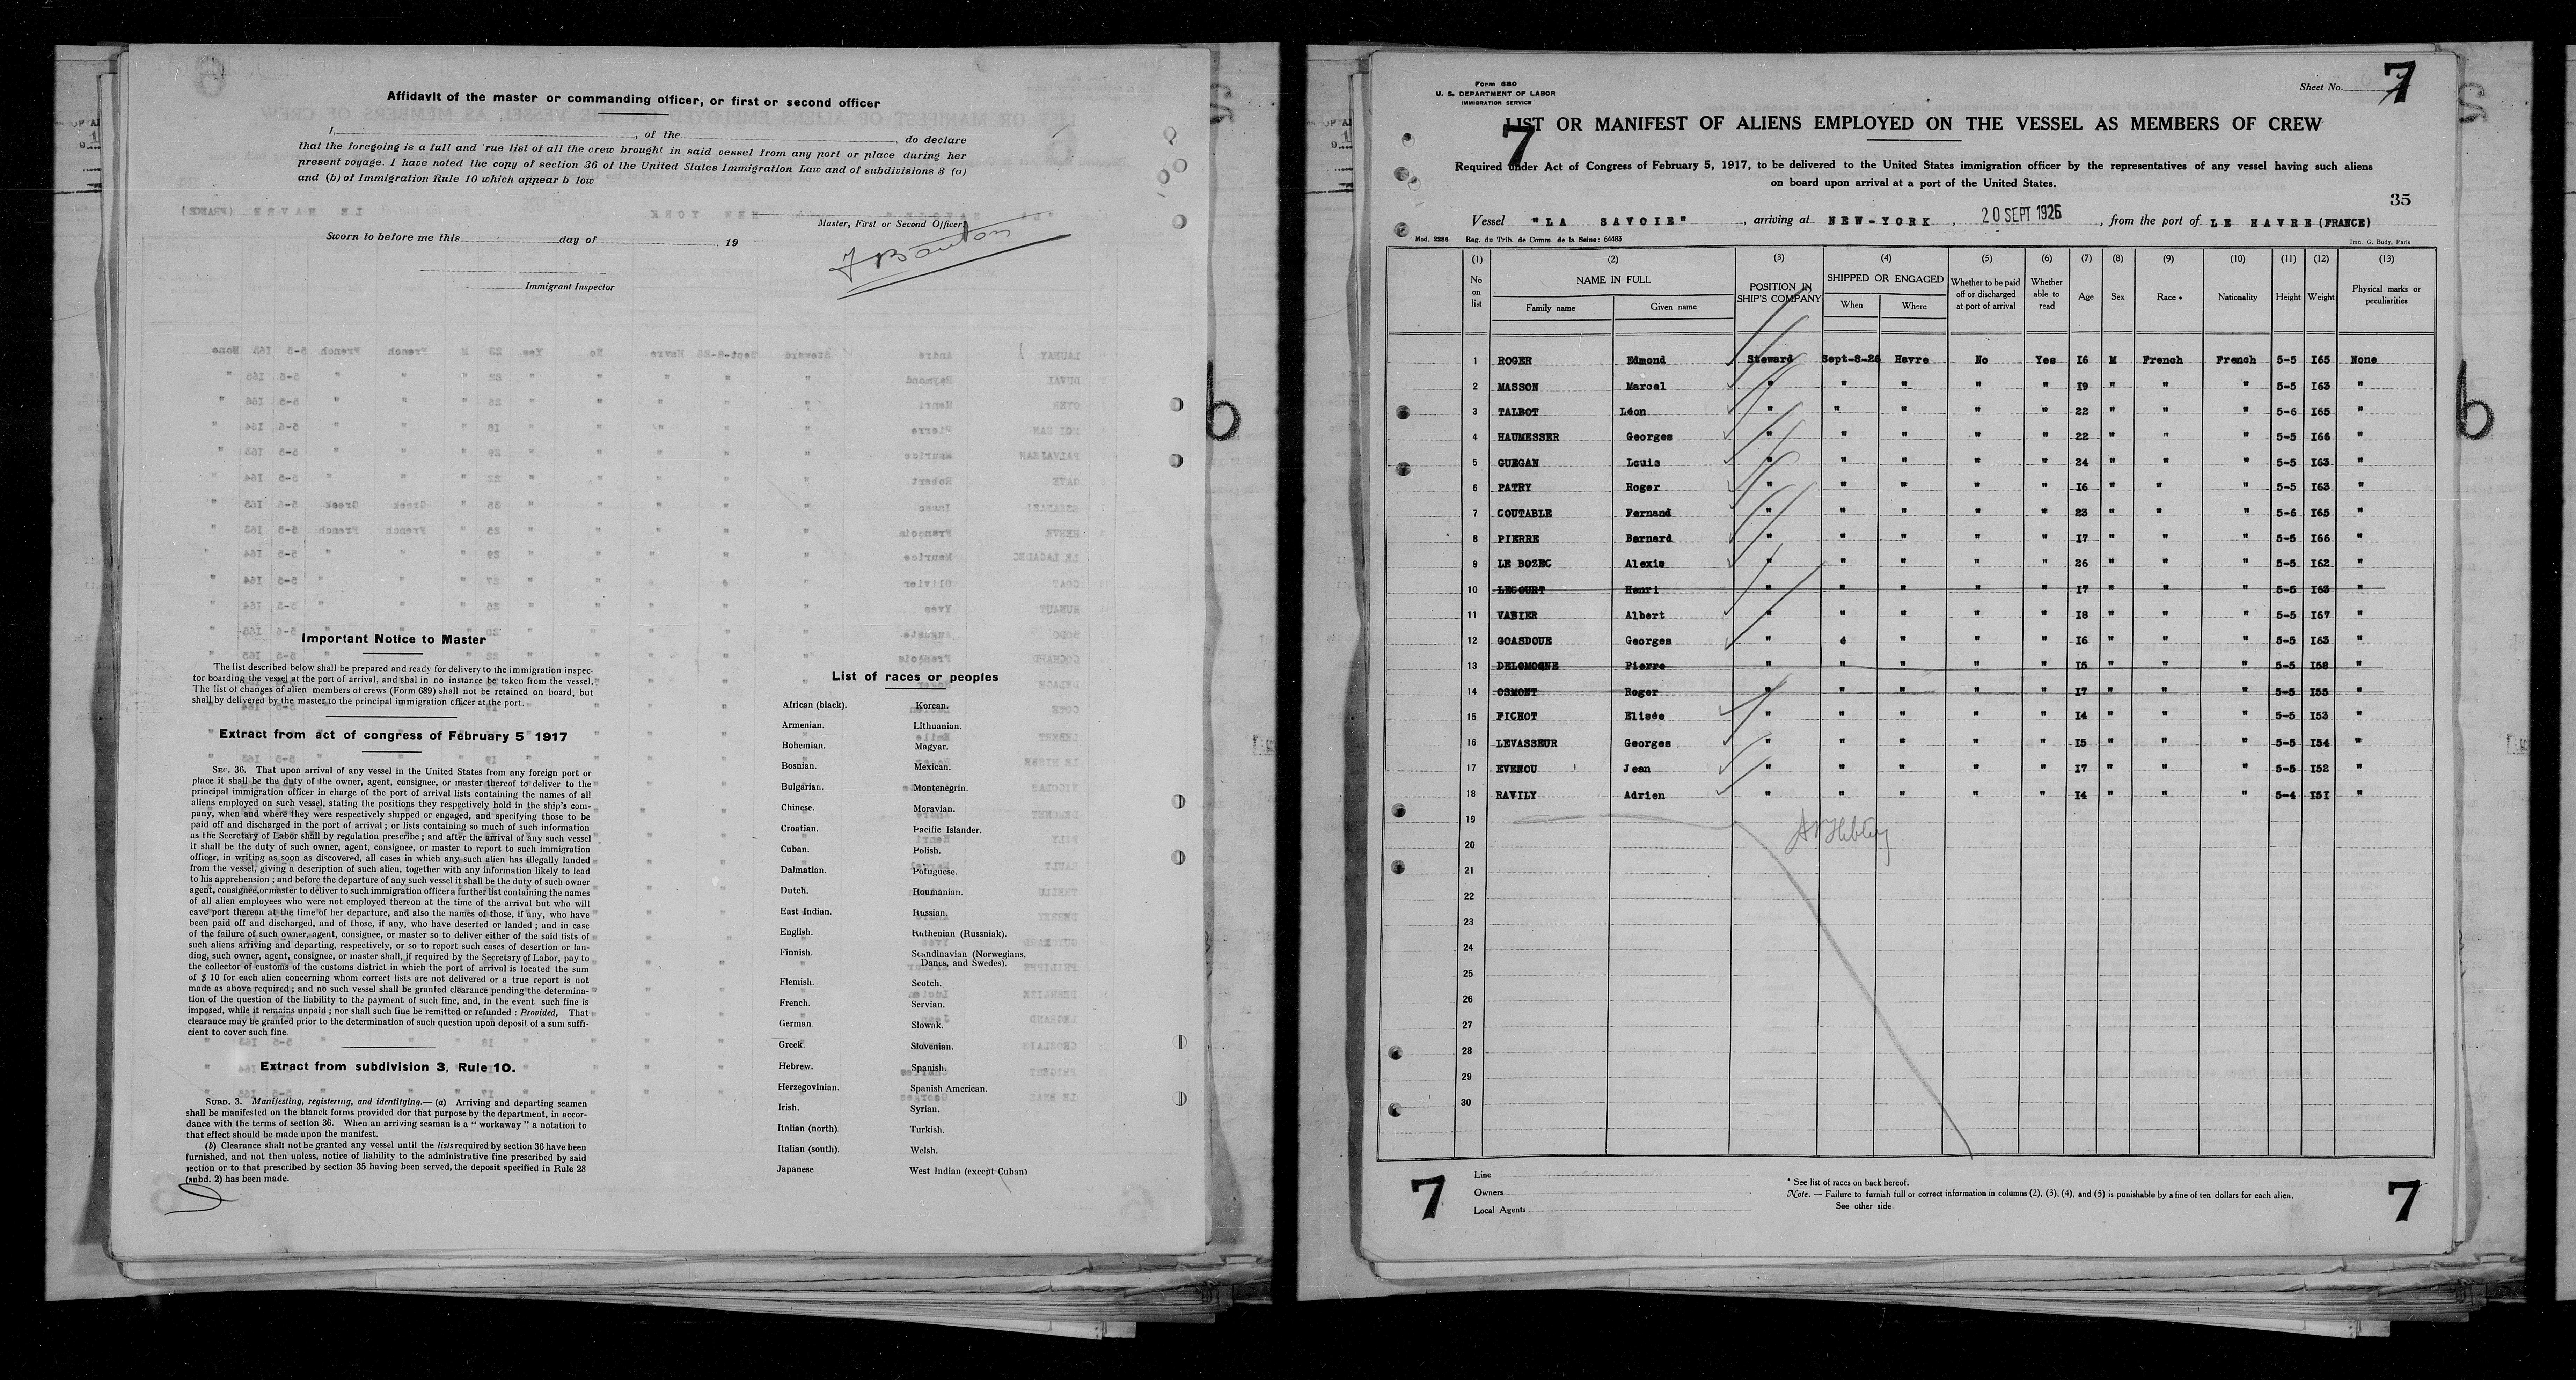 Affidavit of the master or commanding officer, or first or second officer
I, , of the , do declare
that the foregoing is a full and rue list of all the crew brought in said vessel from any port or place during her
present voyage. I have noted the copy of section 36 of the United States Immigration Law and of subdivisions 3 (a)
and (b) of Immigration Rule 10 which appear b low
Master, First or Second Officer.
Sworn to before me this day of , 19
Immigrant Inspector
Important Notice to Master
The list described below shall be prepared and ready for delivery to the immigration inspec-
tor boarding the vessel at the port of arrival, and shal in no instance be taken from the vessel.
The list of changes of alien members of crews (Form 689) shall not be retained on board, but
shall by delivered by the master to the principal immigration officer at the port.
Extract from act of congress of February 5 1917
SEC. 36. That upon arrival of any vessel in the United States from any foreign port or
place it shall be the duty of the owner, agent, consignee, or master thereof to deliver to the
principal immigration officer in charge of the port of arrival lists containing the names of all
aliens employed on such vessel, stating the positions they respectively hold in the ship's com-
pany, when and where they were respectively shipped or engaged, and specifying those to be
paid off and discharged in the port of arrival; or lists containing so much of such information
as the Secretary of Labor shall by regulation prescribe; and after the arrival of any such vessel
it shall be the duty of such owner, agent, consignee, or master to report to such immigration
officer, in writing as soon as discovered, all cases in which any such alien has illegally landed
from the vessel, giving a description of such alien, together with any information likely to lead
to his apprehension; and before the departure of any such vessel it shall be the duty of such owner
agent, consignee, or master to deliver to such immigration officer a further list containing the names
of all alien employees who were not employed thereon at the time of the arrival but who will
eave port thereon at the time of her departure, and also the names of those, if any, who have
been paid off and discharged, and of those, if any, who have deserted or landed; and in case
of the failure of such owner, agent, consignee, or master so to deliver either of the said lists of
such aliens arriving and departing, respectively, or so to report such cases of desertion or lan-
ding, such owner, agent, consignee, or master shall, if required by the Secretary of Labor, pay to
the collector of customs of the customs district in which the port of arrival is located the sum
of $ 10 for each alien concerning whom correct lists are not delivered or a true report is not
made as above required; and no such vessel shall be granted clearance pending the determina-
tion of the question of the liability to the payment of such fine, and, in the event such fine is
imposed, while it remains unpaid; nor shall such fine be remitted or refunded: Provided, That
clearance may be granted prior to the determination of such question upon deposit of a sum suffi-
cient to cover such fine.
Extract from subdivision 3, Rule 10.
SUBD. 3. Manifesting, registering, and identifying.— (a) Arriving and departing seamen
shall be manifested on the blanck forms provided dor that purpose by the department, in accor-
dance with the terms of section 36. When an arriving seaman is a " workaway " a notation to
that effect should be made upon the manifest.
(b) Clearance shall not be granted any vessel until the lists required by section 36 have been
furnished, and not then unless, notice of liability to the administrative fine prescribed by said
section or to that prescribed by section 35 having been served, the deposit specified in Rule 28
(subd. 2) has been made.
List of races or peoples
African (black). Korean.
Armenian. Lithuanian.
Bohemian. Magyar.
Bosnian. Mexican.
Bulgarian. Montenegrin.
Chinese. Moravian.
Croatian. Pacific Islander.
Cuban. Polish.
Dalmatian. Potuguese.
Dutch. Roumanian.
East Indian. Russian.
English. Ruthenian (Russniak).
Finnish. Scandinavian (Norwegians,
Danes, and Swedes).
Flemish. Scotch.
French. Servian.
German. Slowak.
Greek. Slovenian.
Hebrew. Spanish.
Herzegovinian. Spanish American.
Irish. Syrian.
Italian (north). Turkish.
Italian (south). Welsh.
Japanese West Indian (except Cuban)
Form 680
U. S. DEPARTMENT OF LABOR
IMMIGRATION SERVICE
Sheet No. 7
7
LIST OR MANIFEST OF ALIENS EMPLOYED ON THE VESSEL AS MEMBERS OF CREW
Required under Act of Congress of February 5, 1917, to be delivered to the United States immigration officer by the representatives of any vessel having such aliens
on board upon arrival at a port of the United States.
35
Vessel "LA SAVOIE" , arriving at NEW-YORK , 20 SEPT 1926 , from the port of LE HAVRE (FRANCE)
Mod. 2286 Reg. du Trib. de Comm. de la Seine: 64483 Imp. G. Body, Paris
(1) (2) (3) (4) (5) (6) (7) (8) (9) (10) (11) (12) (13)
No on list NAME IN FULL POSITION IN SHIP'S COMPANY SHIPPED OR ENGAGED Whether to be paid off or discharged at port of arrival Whether able to read Age Sex Race * Nationality Height Weight Physical marks or peculiarities
Family name Given name When Where
1 ROGER Edmond Steward Sept-8-26 Havre No Yes I6 M French French 5-5 I65 None
2 MASSON Marcel " " " " " I9 " " " 5-5 I63 "
3 TALBOT Léon " " " " " 22 " " " 5-6 I65 "
4 HAUMESSER Georges " " " " " 22 " " " 5-5 I66 "
5 GUEGAN Louis " " " " " 24 " " " 5-5 I63 "
6 PATRY Roger " " " " " I6 " " " 5-5 I63 "
7 COUTABLE Fernand " " " " " 23 " " " 5-6 I65 "
8 PIERRE Barnard " " " " " I7 " " " 5-5 I66 "
9 LE BOZEC Alexis " " " " " 26 " " " 5-5 I62 "
10 LECOURT Henri " " " " " I7 " " " 5-5 I63 "
11 VABIER Albert " " " " " I8 " " " 5-5 I67 "
12 GOASDOUE Georges " é " " " I6 " " " 5-5 I63 "
13 DELOMOGNE Pierre " " " " " I5 " " " 5-5 I58 "
14 OSMONT Roger " " " " " I7 " " " 5-5 I55 "
15 PICHOT Elisée " " " " " I4 " " " 5-5 I53 "
16 LEVASSEUR Georges " " " " " I5 " " " 5-5 I54 "
17 EVENOU Jean " " " " " I7 " " " 5-5 I52 "
18 RAVILY Adrien " " " " " I4 " " " 5-4 I5I "
19
20
21
22
23
24
25
26
27
28
29
30
7
Line
Owners
Local Agents
* See list of races on back hereof.
Note. — Failure to furnish full or correct information in columns (2), (3), (4), and (5) is punishable by a fine of ten dollars for each alien.
See other side.
7